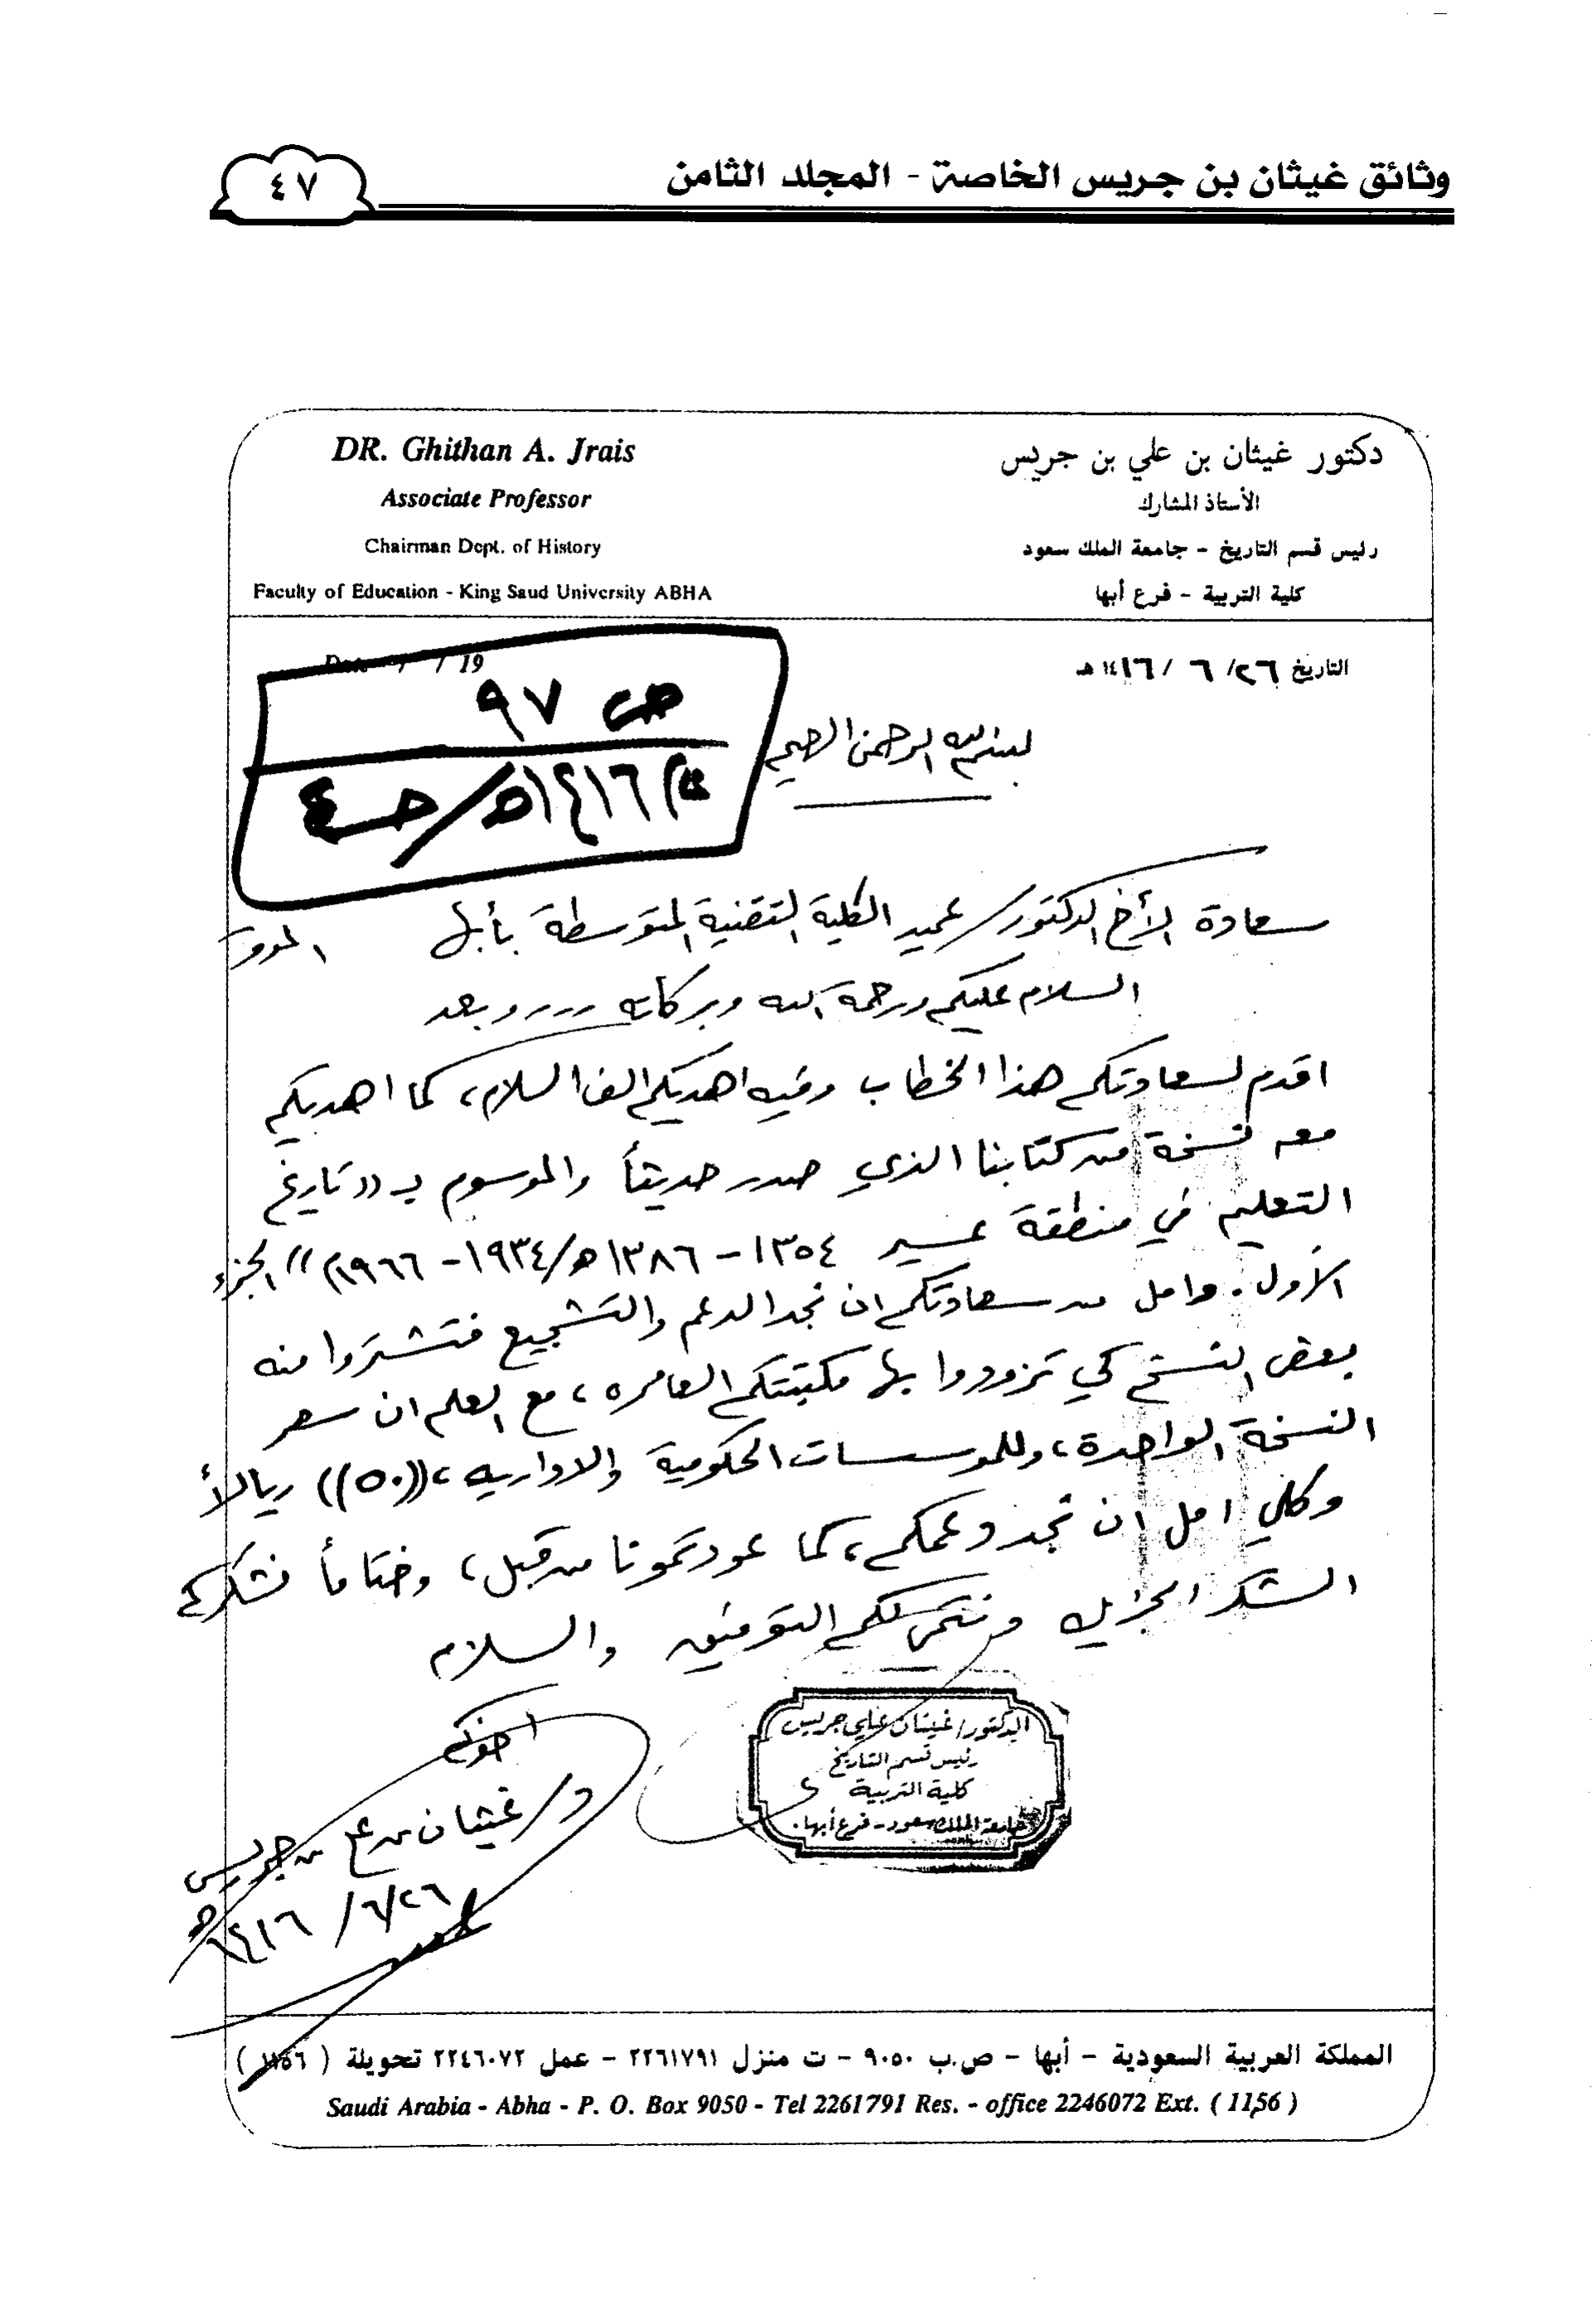 وثائق غيثان بن جريس الخاصة - المجلد الثامن
٤٧
DR. Ghithan A. Jrais
Associate Professor
Chairman Dept. of History
Faculty of Education - King Saud University ABHA
دكتور غيثان بن علي بن جريس
الأستاذ المشارك
رئيس قسم التاريخ - جامعة الملك سعود
كلية التربية - فرع أبها
التاريخ ٢٦/ ٦ / ١٤١٦ هـ
Date / / 19
ص ٩٧
١٤١٦هـ/حـ٤
بسم الله الرحمن الرحيم
سعادة الأخ الدكتور/ عميد الكلية التقنية المتوسطة بأبها الموقر
السلام عليكم ورحمة الله وبركاته .... وبعد
اقدم لسعادتكم هذا الخطاب وفيه اهديكم الف السلام، كما اهديكم
معه نسخة من كتابنا الذي صدر حديثاً والموسوم بـ ((تاريخ
التعليم في منطقة عسير ١٣٥٤ - ١٣٨٦هـ/١٩٣٤ - ١٩٦٦م)) الجزء
الأول. وامل من سعادتكم ان نجد الدعم والتشجيع فتشتروا منه
بعض النسخ كي تزودوا بها مكتبتكم العامره، مع العلم ان سعر
النسخة الواحدة، وللموسسات الحكومية والاداريه، ((٥٠)) ريالاً
وكلي امل ان نجد دعمكم، كما عودتمونا من قبل، وختاماً نشكركم
الشكر الجزيل ونتمنى لكم التوفيق والسلام
اخوكم
د/ غيثان بن علي بن جريس
٢٦/٦/ ١٤١٦هـ
الدكتور/ غيثان علي جريس
رئيس قسم التاريخ
كلية التربية
جامعة الملك سعود - فرع أبها.
المملكة العربية السعودية - أبها - ص.ب ٩٠٥٠ - ت منزل ٢٢٦١٧٩١ - عمل ٢٢٤٦٠٧٢ تحويلة ( ١١٥٦ )
Saudi Arabia - Abha - P. O. Box 9050 - Tel 2261791 Res. - office 2246072 Ext. ( 1156 )